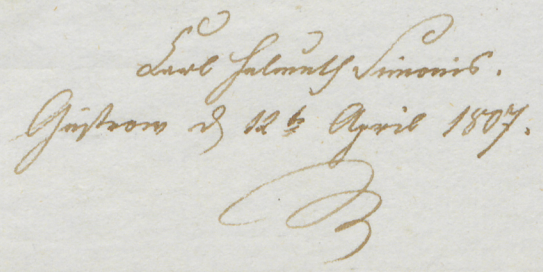 Carl Helmuth Simonis.
Güstrow d 12t April 1807.